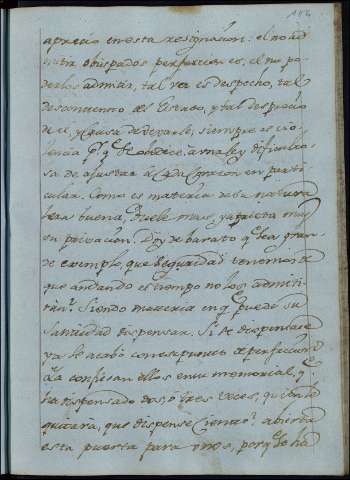 aprecio en esta resignacion: el no ad
mitir obispados perfeccion es, el no po
derlos admitir, tal vez es despecho, tal
descontento del Estado, y tal desprecio
de el, y causa de dexarle, siempre es vio
lencia qe. se obedece
sa de ajustar a cada Corazon en parti
cular. Como es materia de su natura
leza buena, duele mas, y aprieta mas
en privacion. Doy de barato qe. sea gran
de exemplo, que seguridad tenemos de
que andando el tiempo no los admiti
ran? Siendo materia en qe. puede su
Santidad dispensar. Si se dispensase
ya se acabó con este punto de perfeccion
La confiesan ellos en su memorial, y
ha dispensado dos, o tres veces, quien le
quitara, que dispense ciento? abierta
esta puerta para unos, porque lo ha